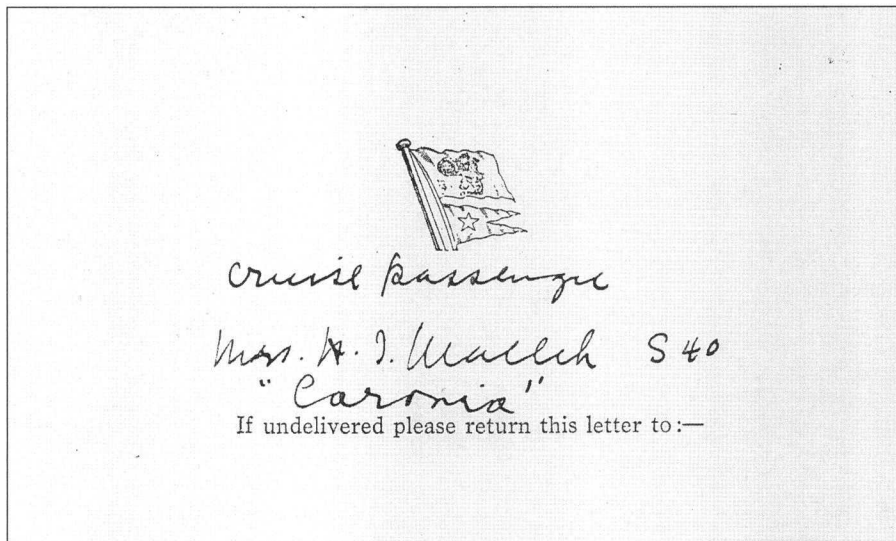 cruise passenger
Mrs. H. I. Wallch S 40
"Caronia"
If undelivered please return this letter to:—